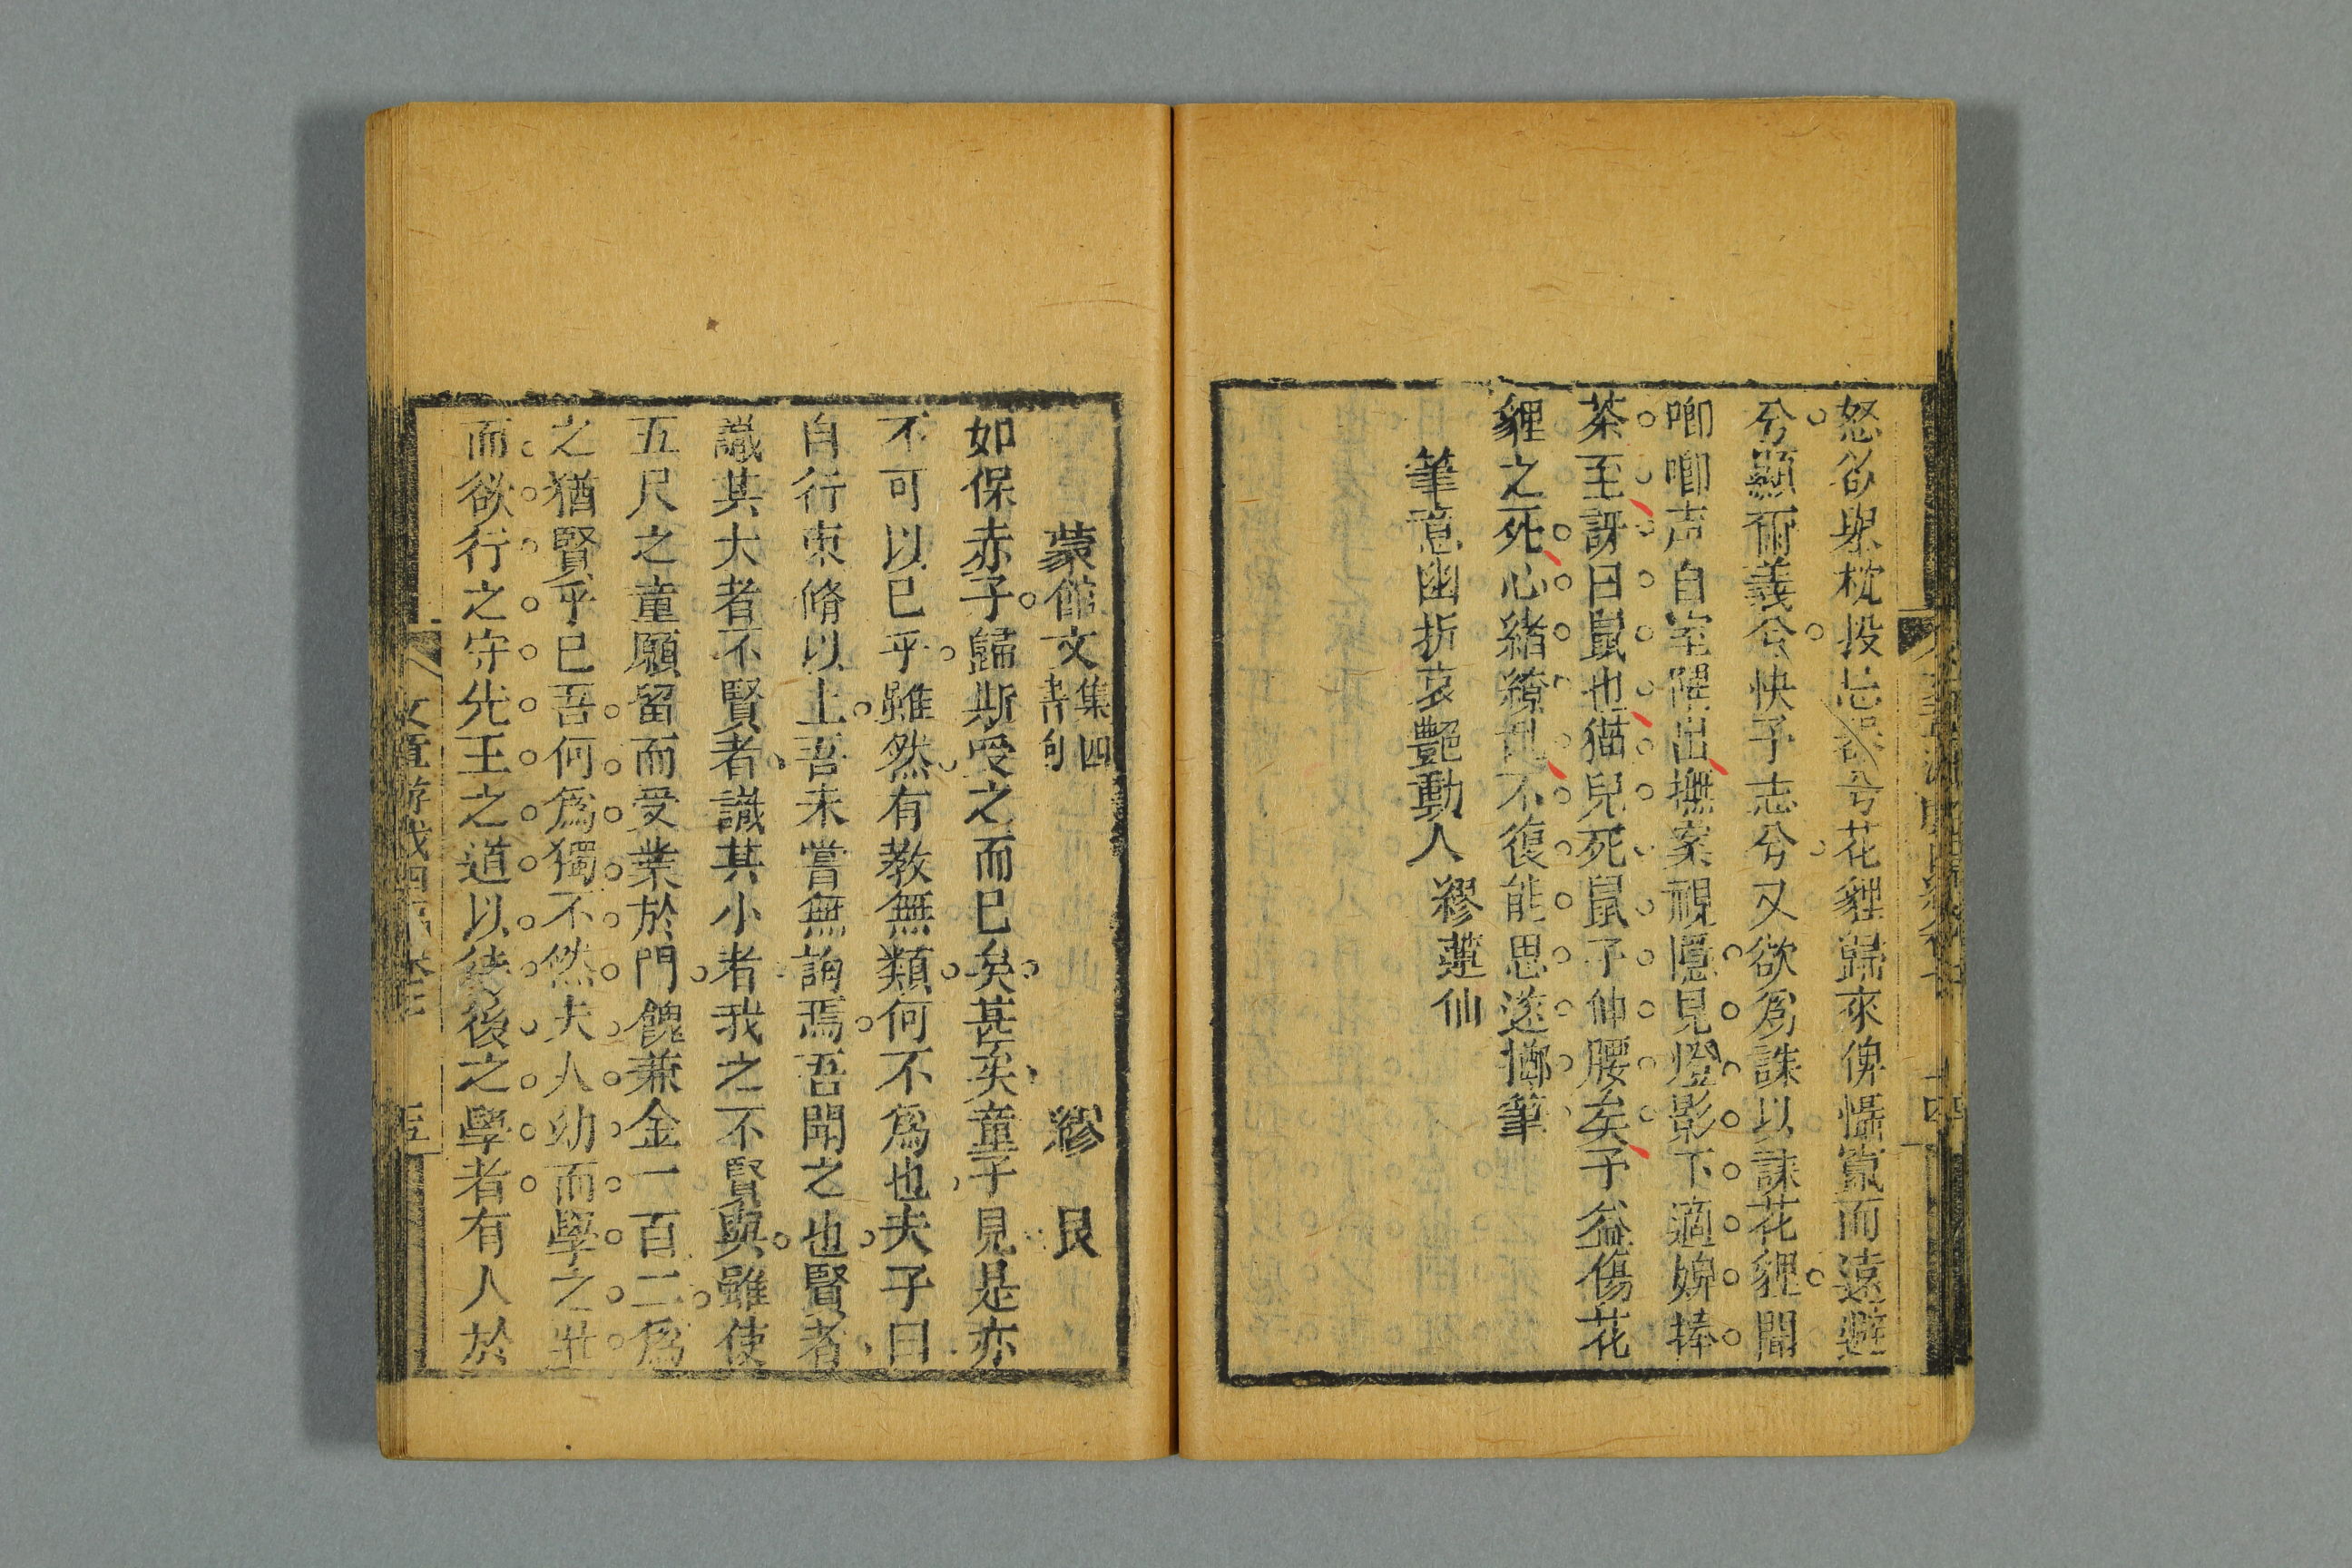 怒欲擧枕投忌器兮花貍歸來俾懾竄而遠避
兮顯爾義兮快予志兮又欲爲誅以誄花貍聞
唧唧声自室隅出撫案視隱見燈影下適婢捧
茶至訝曰鼠也猫兒死鼠子伸腰矣予益傷花
貍之死心緒繚乱不復能思遂擲筆
筆意幽折哀艷動人 繆蓮仙
蒙館文 集四書句 繆 艮
如保赤子歸斯受之而已矣甚矣童子見是亦
不可以已乎雖然有教無類何不爲也夫子曰
自行束脩以上吾未嘗無誨焉吾聞之也賢者
識其大者不賢者識其小者我之不賢與雖使
五尺之童願留而受業於門餽兼金一百二爲
之猶賢乎已吾何爲獨不然夫人幼而學之壯
而欲行之守先王之道以待後之學者有人於
文章游戲四編 卷三 五